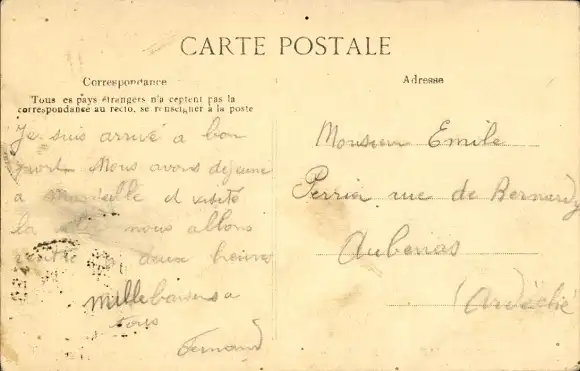 CARTE POSTALE
Correspondance
Tous es pays étrangers n'a ceptent pas la
correspondance au recto, se renseigner à la poste
Je suis arrivé a bon
port. Nous avons dejeuné
a Marseille et visité
la ville nous allons
deux heures
Mille baisers a
tous
Fernand
Adresse
Monsieur Emile
Perrin rue de Bernardy
Aubenas
(Ardèche)